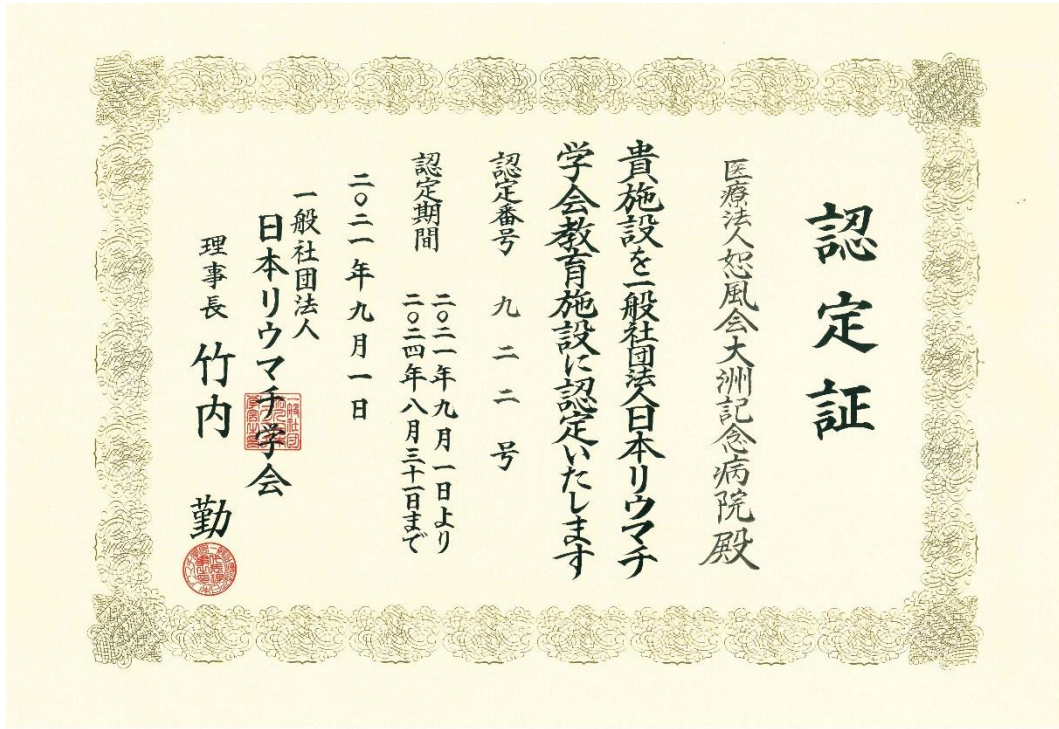 認定証
医療法人恕風会大洲記念病院殿
貴施設を一般社団法人日本リウマチ
学会教育施設に認定いたします
認定番号 九二二号
認定期間 二〇二一年九月一日より
二〇二四年八月三十一日まで
二〇二一年九月一日
一般社団法人
日本リウマチ学会
理事長 竹内 勤